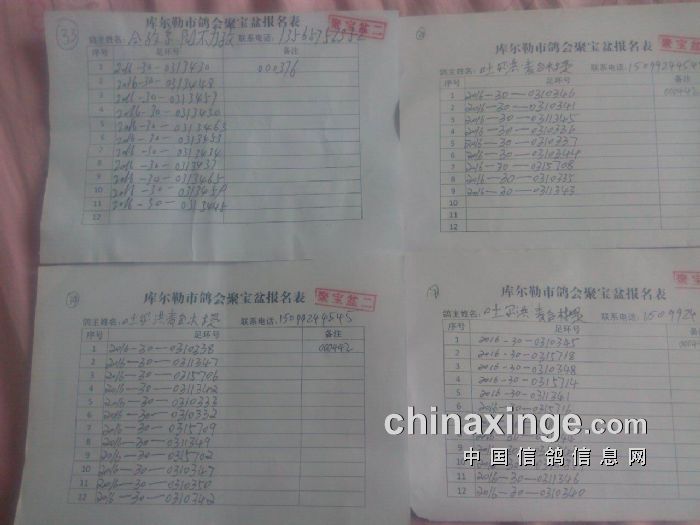 33
库尔勒市鸽会聚宝盆报名表
聚宝盆二
鸽主姓名:
联系电话:
序号 足环号 备注
1 2016-30-0313430 000376
2 2016-30-0313448
3 2016-30-0313457
4 2016-30-0313450
5 2016-30-0313463
6 2016-30-0313453
7 2016-30-0313434
8 2016-30-0313437
9 2016-30-0313465
10 2016-30-0313459
11 2016-30-0313445
12
库尔勒市鸽会聚宝盆报名表
聚宝
鸽主姓名: 联系电话:
序号 足环号 备注
1 2016-30-0310346 000442
2 2016-30-0310341
3 2016-30-0311345
4 2016-30-0310336
5 2016-30-0310337
6 2016-30-0310344
7 2016-30-0315708
8 2016-30-0310335
9 2016-30-0311343
10
11
12
库尔勒市鸽会聚宝盆报名表
聚宝盆二
鸽主姓名: 联系电话:15099244545
序号 足环号 备注
1 2016-30-0310338 000442
2 2016-30-0311347
3 2016-30-0315706
4 2016-30-0311342
5 2016-30-0310333
6 2016-30-0310332
7 2016-30-0315709
8 2016-30-0311349
9 2016-30-0315702
10 2016-30-0310347
11 2016-30-0310350
12 2016-30-0310342
库尔勒市鸽会聚宝盆报名表
聚宝
鸽主姓名: 联系电话:15099244
序号 足环号 备注
1 2016-30-0310345 000442
2 2016-30-0315718
3 2016-30-0310348
4 2016-30-0315714
5 2016-30-0311341
6
11 2016-30-0311346
12 2016-30-0310340
chinaxinge.com
中国信鸽信息网